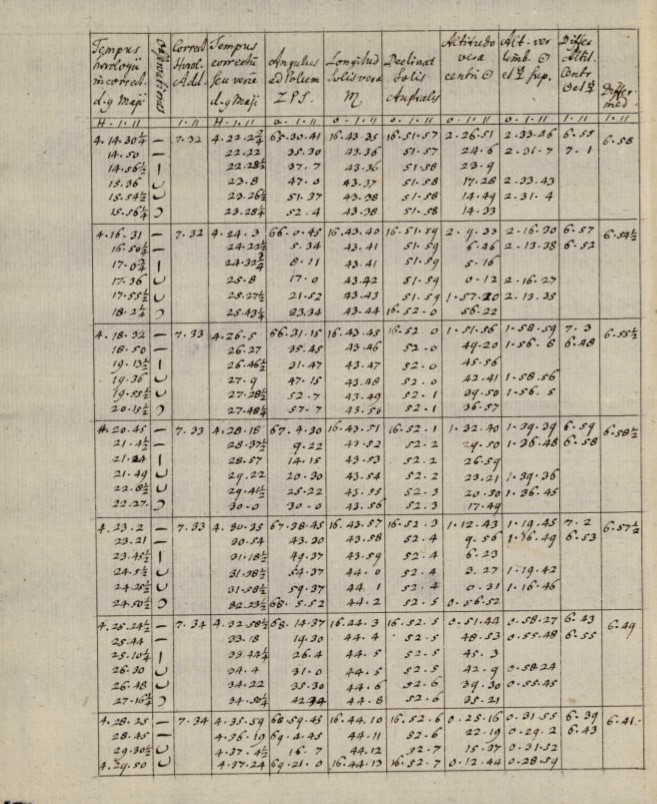 Tempus horologii incorrect. d. 9 Maji | Correct. Horol. Add. | Tempus correctu seu verū d. 9 Maji | Angulus ad Polum Z P S. | Longitud Solis vera | Declinat Solis Australis | Altitudo vera centri ☉ | Alt. ver limb. ☉ | Differ med.
H. I. II | I. II | H. I. II | 0. I. II | 0. I. II | 0. I. II | 0. I. II | 0. I. II | I. II | I. II
4. 14. 30¼ — 7. 32 4. 22. 2¾ 65. 30. 41 16. 43. 35 16. 51. 57 2. 26. 51 2. 33. 26 6. 55 6. 58
14. 50 — 22. 22 35. 30 43. 36 51. 57 24. 6 2. 31. 7 7. 1
14. 56½ | 22. 28½ 37. 7 43. 36 51. 58 23. 9
15. 36 ‿ 23. 8 47. 0 43. 37 51. 58 17. 28 2. 33. 43
15. 54½ ‿ 23. 26½ 51. 37 43. 38 51. 58 14. 49 2. 31. 4
15. 56¼ 23. 28¼ 52. 4 43. 38 51. 58 14. 33
4. 16. 31 — 7. 32 4. 24. 3 66. 0. 45 16. 43. 40 16. 51. 59 2. 9. 33 2. 16. 30 6. 57 6. 54½
16. 50¼ — 24. 22½ 5. 34 43. 41 51. 59 6. 46 2. 13. 38 6. 52
17. 0¾ | 24. 32¾ 8. 11 43. 41 51. 59 5. 16
17. 36 ‿ 25. 8 17. 0 43. 42 51. 59 0. 12 2. 16. 27
17. 55½ ‿ 25. 27½ 21. 52 43. 43 51. 59 1. 57. 20 2. 13. 35
18. 2¼ 25. 43¼ 23. 34 43. 44 16. 52. 0 56. 22
4. 18. 32 — 7. 33 4. 26. 5 66. 31. 15 16. 43. 45 16. 52. 0 1. 51. 56 1. 58. 59 7. 3 6. 55½
18. 50 — 26. 27 35. 45 43. 46 52. 0 49. 20 1. 56. 8 6. 48
19. 13½ | 26. 46½ 31. 47 43. 47 52. 0 45. 56
19. 36 ‿ 27. 9 47. 15 43. 48 52. 0 42. 41 1. 58. 56
19. 55½ ‿ 27. 28½ 52. 7 43. 49 52. 1 39. 50 1. 56. 5
20. 15½ 27. 48½ 57. 7 43. 50 52. 1 36. 57
4. 20. 45 — 7. 33 4. 28. 18 67. 4. 30 16. 43. 51 16. 52. 1 1. 32. 40 1. 39. 39 6. 59 6. 58½
21. 4½ — 28. 37½ 9. 22 43. 52 52. 2 29. 50 1. 36. 48 6. 58
21. 24 | 28. 57 14. 15 43. 53 52. 2 26. 59
21. 49 ‿ 29. 22 20. 30 43. 54 52. 2 23. 21 1. 39. 36
22. 8½ ‿ 29. 41½ 25. 22 43. 55 52. 3 20. 30 1. 36. 45
22. 27. 30. 0 30. 0 43. 56 52. 3 17. 49
4. 23. 2 — 7. 33 4. 30. 35 67. 38. 45 16. 43. 57 16. 52. 3 1. 12. 43 1. 19. 45 7. 2 6. 57½
23. 21 — 30. 54 43. 30 43. 58 52. 4 9. 56 1. 16. 49 6. 53
23. 45½ | 31. 18½ 49. 37 43. 59 52. 4 6. 23
24. 5½ ‿ 31. 38½ 54. 37 44. 0 52. 4 3. 27 1. 19. 42
24. 25½ ‿ 31. 58½ 59. 37 44. 1 52. 4 0. 31 1. 16. 46
24. 50½ 32. 23½ 68. 5. 52 44. 2 52. 5 0. 56. 52
4. 25. 24½ — 7. 34 4. 32. 58½ 68. 14. 37 16. 44. 3 16. 52. 5 0. 51. 44 0. 58. 27 6. 43 6. 49
25. 44 — 33. 18 19. 30 44. 4 52. 5 48. 53 0. 55. 48 6. 55
25. 10¼ | 33. 44¼ 26. 4 44. 5 52. 5 45. 3
26. 30 ‿ 34. 4 31. 0 44. 5 52. 5 42. 9 0. 58. 24
26. 48 ‿ 34. 22 35. 30 44. 6 52. 6 39. 30 0. 55. 45
27. 16¼ 34. 50¼ 42. 34 44. 8 52. 6 35. 21
4. 28. 25 — 7. 34 4. 35. 59 68. 59. 45 16. 44. 10 16. 52. 6 0. 25. 16 0. 31. 55 6. 39 6. 41.
28. 45 — 4. 36. 19 69. 4. 45 44. 11 52. 6 22. 19 0. 29. 2 6. 43
29. 30½ ‿ 4. 37. 4½ 16. 7 44. 12 52. 7 15. 37 0. 31. 52
4. 29. 50 ‿ 4. 37. 24 69. 21. 0 16. 44. 13 16. 52. 7 0. 12. 44 0. 28. 59